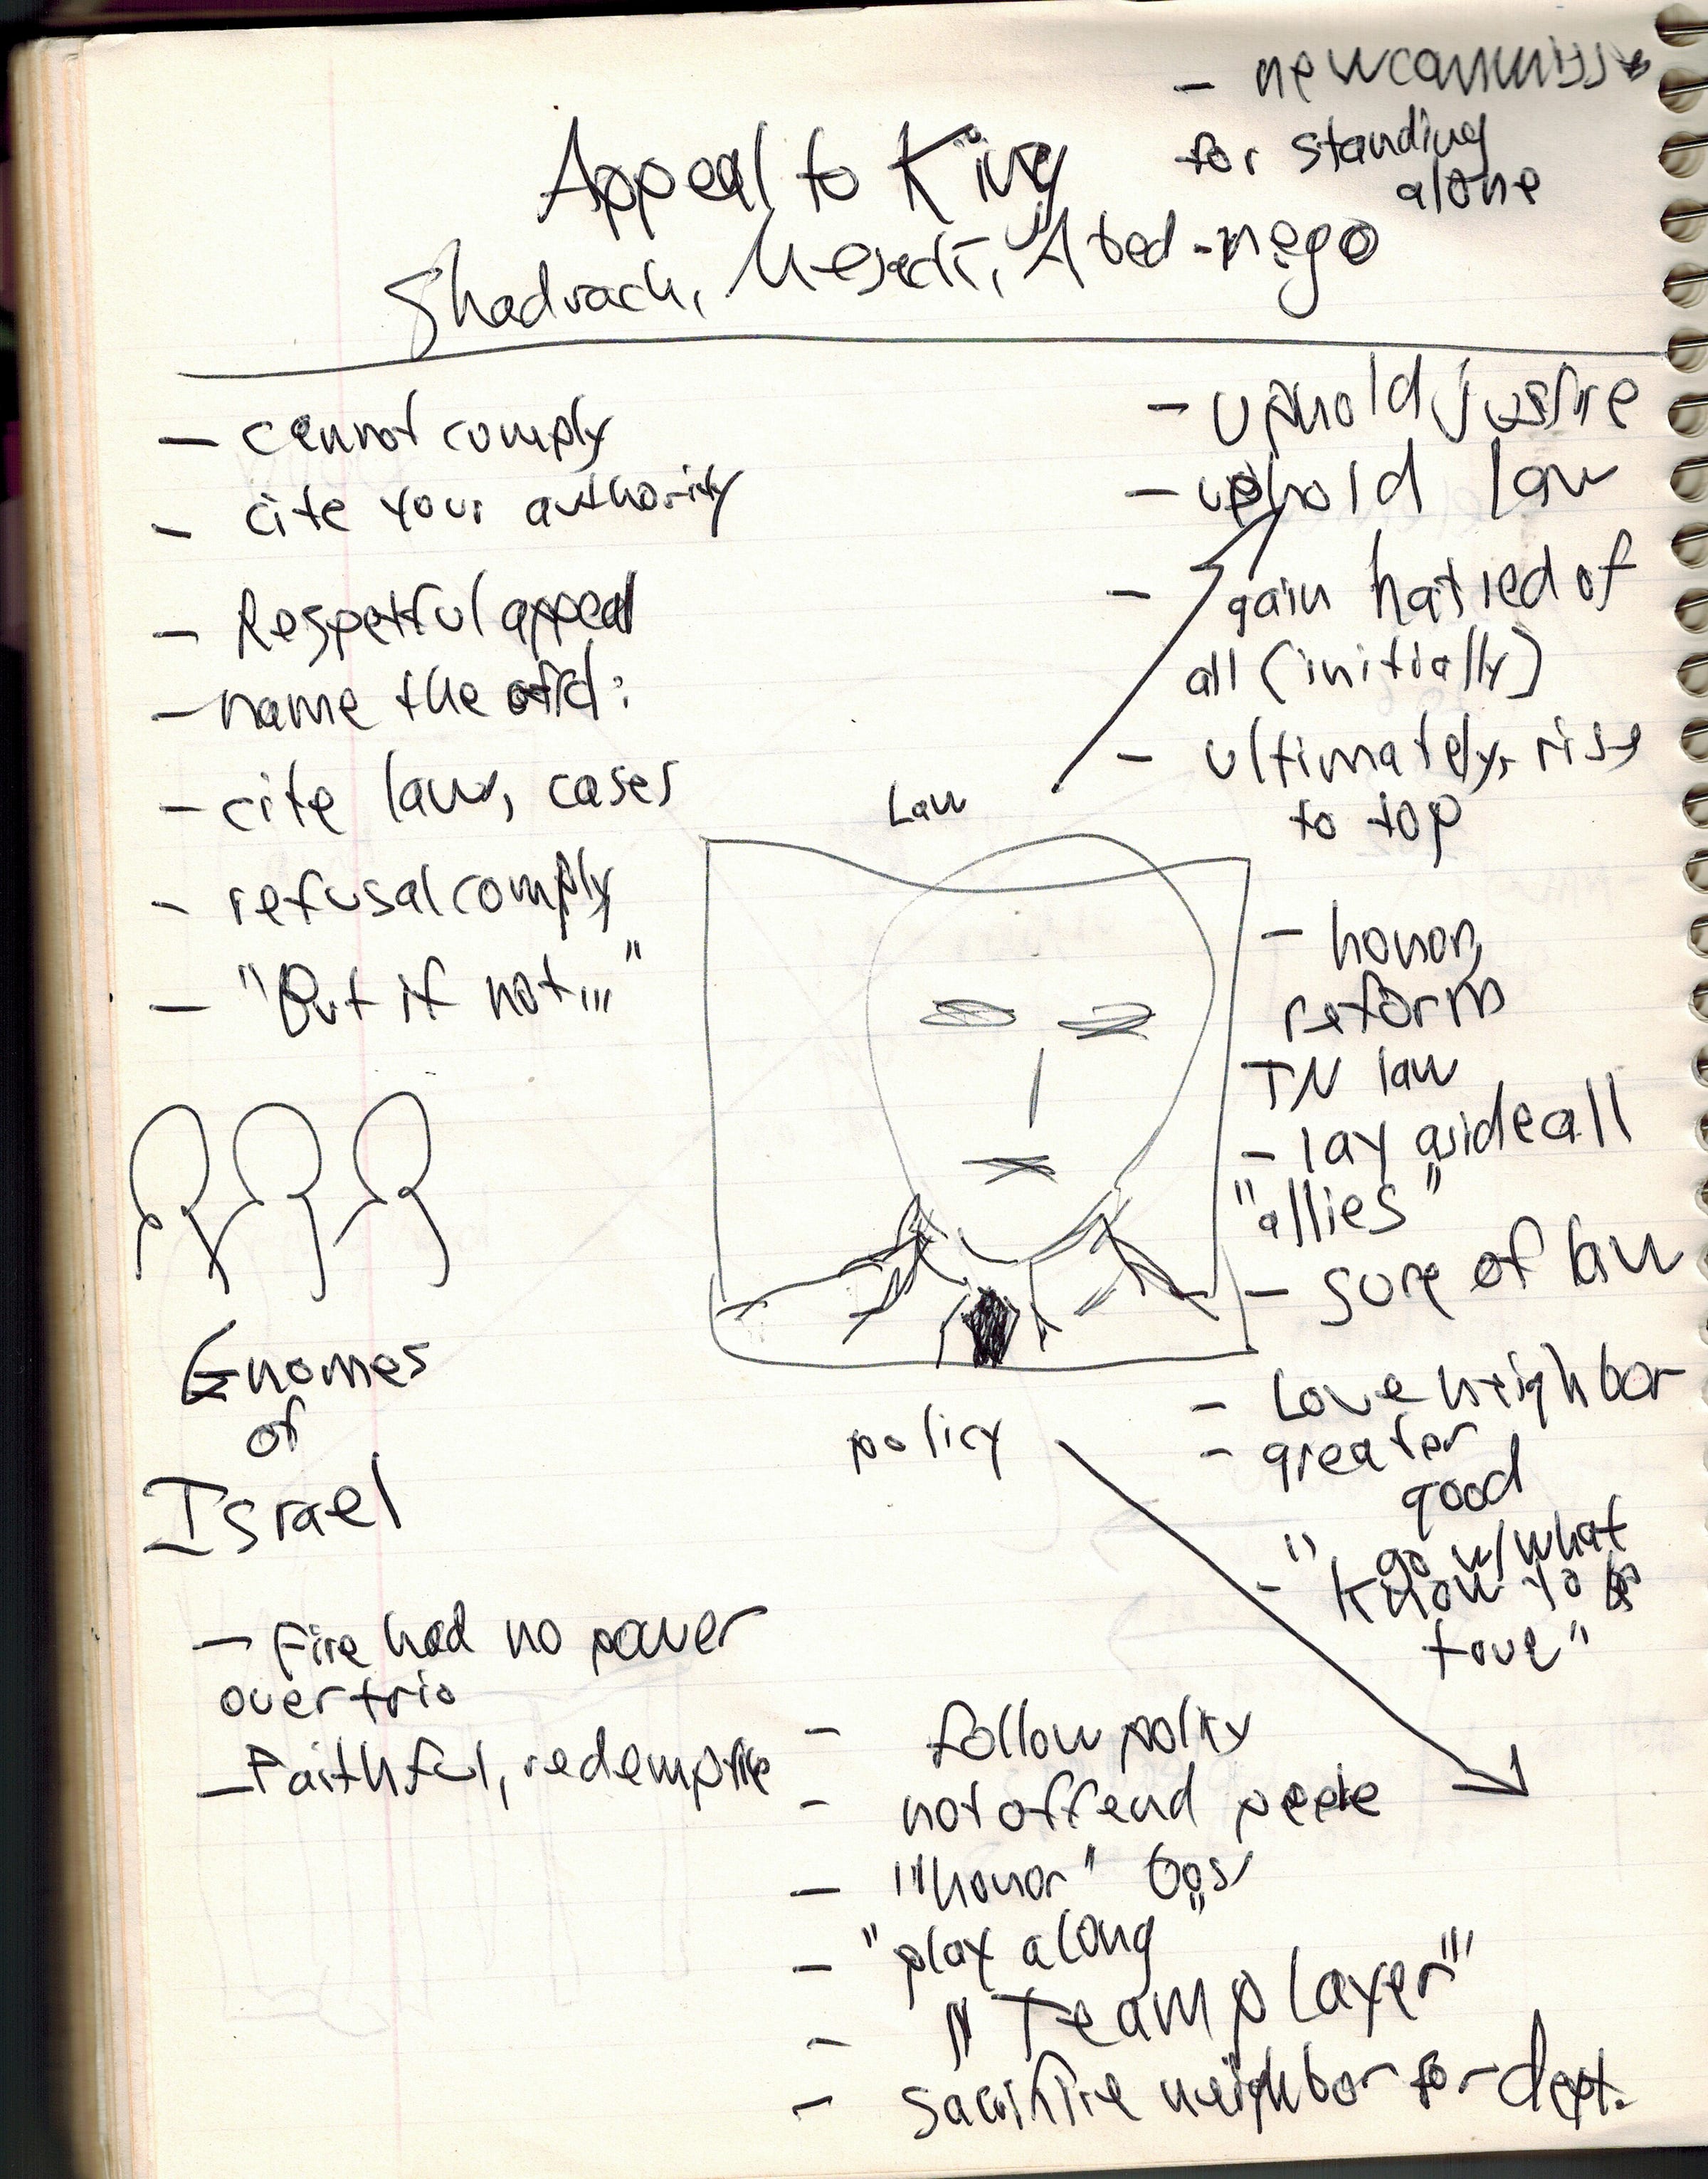 - new commiss
for standing
alone
Appeal to King
Shadrach, Mesach, Abed-nego
- cannot comply
- cite your authority
- Respetful appeal
- name the
- cite law, cases
- refusal comply
- "But if not..."
Gnomes
of
Israel
- Fire had no power
over trio
- Faithful, redemptive
- uphold justire
- uphold law
- gain hatred of
all (initially)
- ultimately, rise
to top
Law
- honor,
reform
TN law
- lay aside all
"allies"
- sure of law
policy
- Love neighbor
- greater
good
- " go w/what
know to be
true"
- follow policy
- not offend people
- "honor"
- "play along"
- "Team player"
- sacrifire neighbor for dept.